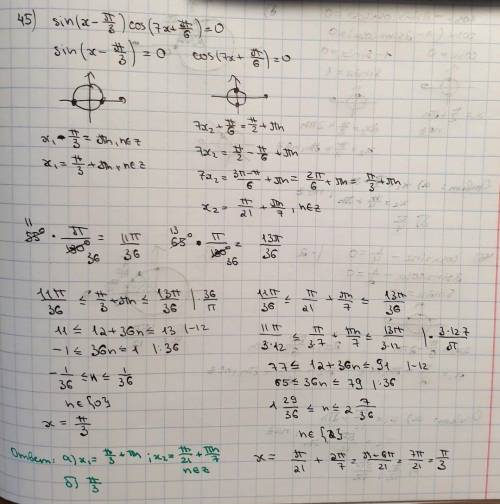 45) sin(x-π/3)cos(7x+π/6)=0
sin(x-π/3)=0 cos(7x+π/6)=0
x₁-π/3=πn, n∈z
x₁=π/3+πn, n∈z
7x₂+π/6=π/2+πn
7x₂=π/2-π/6+πn
7x₂=3π-π/6+πn=2π/6+πn=π/3+πn
x₂=π/21+πn/7, n∈z
11 55°·π/180° 36=11π/36 13 65°·π/180° 36=13π/36
11π/36≤π/3+πn≤13π/36 |36/π
11≤12+36n≤13 |-12
-1≤36n≤1 |:36
-1/36≤n≤1/36
n∈{0}
x=π/3
11π/36≤π/21+πn/7≤13π/36
11π/3·12≤π/3·7+πn/7≤13π/3·12 |·3·12·7/π
77≤12+36n≤91 |-12
65≤36n≤79 |:36
1 29/36≤n≤2 7/36
n∈{2}
x=π/21+2π/7=π+6π/21=7π/21=π/3
Ответ: а) x₁=π/3+πn; x₂=π/21+πn/7 n∈z
б) π/3